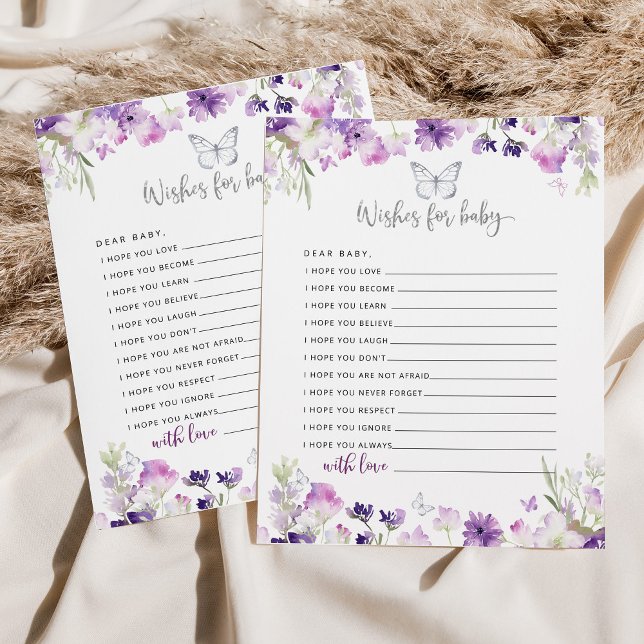 Wishes for ba
DEAR BABY,
I HOPE YOU LOVE
I HOPE YOU BECOME
I HOPE YOU LEARN
I HOPE YOU BELIEVE
I HOPE YOU LAUGH
I HOPE YOU DON'T
I HOPE YOU ARE NOT AFRAID
I HOPE YOU NEVER FORGET
I HOPE YOU RESPECT
I HOPE YOU IGNORE
I HOPE YOU ALWAYS
with love
Wishes for baby
DEAR BABY,
I HOPE YOU LOVE
I HOPE YOU BECOME
I HOPE YOU LEARN
I HOPE YOU BELIEVE
I HOPE YOU LAUGH
I HOPE YOU DON'T
I HOPE YOU ARE NOT AFRAID
I HOPE YOU NEVER FORGET
I HOPE YOU RESPECT
I HOPE YOU IGNORE
I HOPE YOU ALWAYS
with love